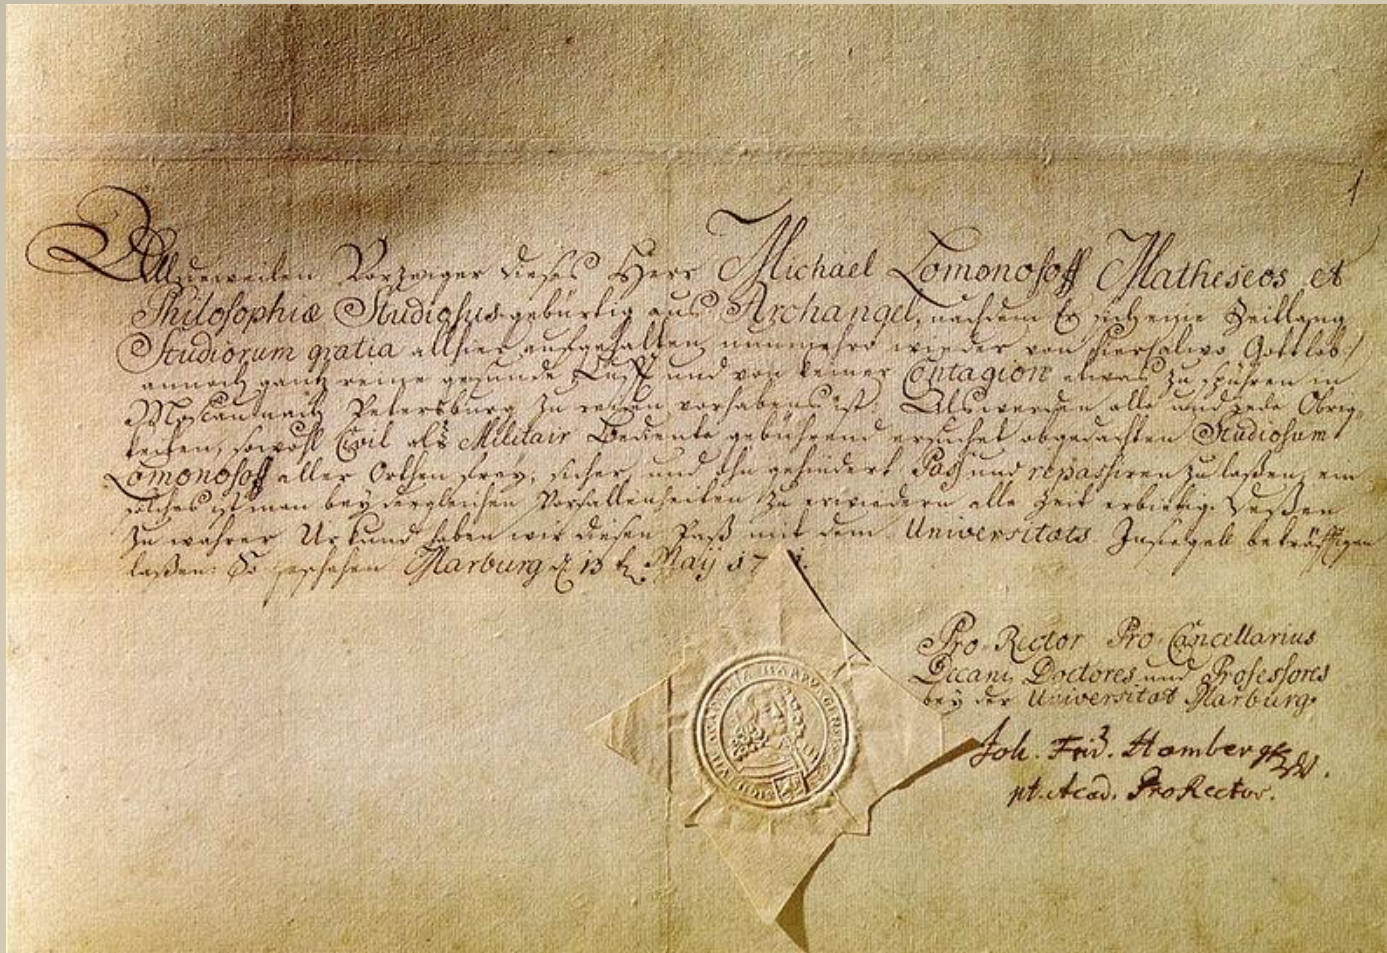 1
Alldieweilen Vorzeiger dieses Herr Michael Lomonosoff Matheseos et
Philosophiæ Studiosus gebürtig aus Archangel, nachdem Er sich eine Zeitlang
Studiorum gratia allhier aufgehalten, nunmehro wieder von hier, allwo Gottlob!
annoch gantz reine gesunde Lufft und von keiner Contagion etwas zu spühren in
Petersburg zu reisen vorhabens ist; Als werden alle und jede Obrig-
keiten, sowohl Civil als Militair Bediente gebührend ersuchet obgedachten Studiosum
Lomonosoff aller Orthen frey, sicher, und ohngehindert Pass und repassiren zu laßen, ein
solches ist man bey dergleichen Vorfallenheiten zu erwiedern alle Zeit erbiethig. Deßen
zu wahrer Urkund haben wir diesen Paß mit dem Universitäts Insiegell bekräfftigen
laßen: So geschehen Marburg d. 13 Maÿ 17
Pro-Rector Pro Cancellarius
Decani Doctores und Professores
bey der Universität Marburg.
Joh. Frid. Hombergk
pt. Acad. ProRector.